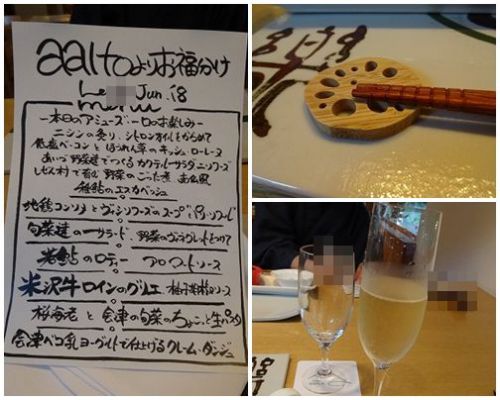 aaltoよりお福分け
Jun. 18
menu
ー本日のアミューズ 一口のお楽しみー
ニシンの炙り、シトロンオイルをからめて
低塩ベーコンとほうれん草のキッシュ・ローレーヌ
あいづ野菜達でつくるカクテルサラダ ニソワーズ
稚鮎のエスカベッシュ
地鶏コンソメとヴィシソワーズのスープ
旬菜達のーサラードー、野菜のヴィネグレットをつけて
岩鮎のロティー
米沢牛ロインのグリエ
桜海老と会津の旬菜のちょこっと生パスタ
会津ベコ乳ヨーグルトで仕上げるクレーム・ダンジュ